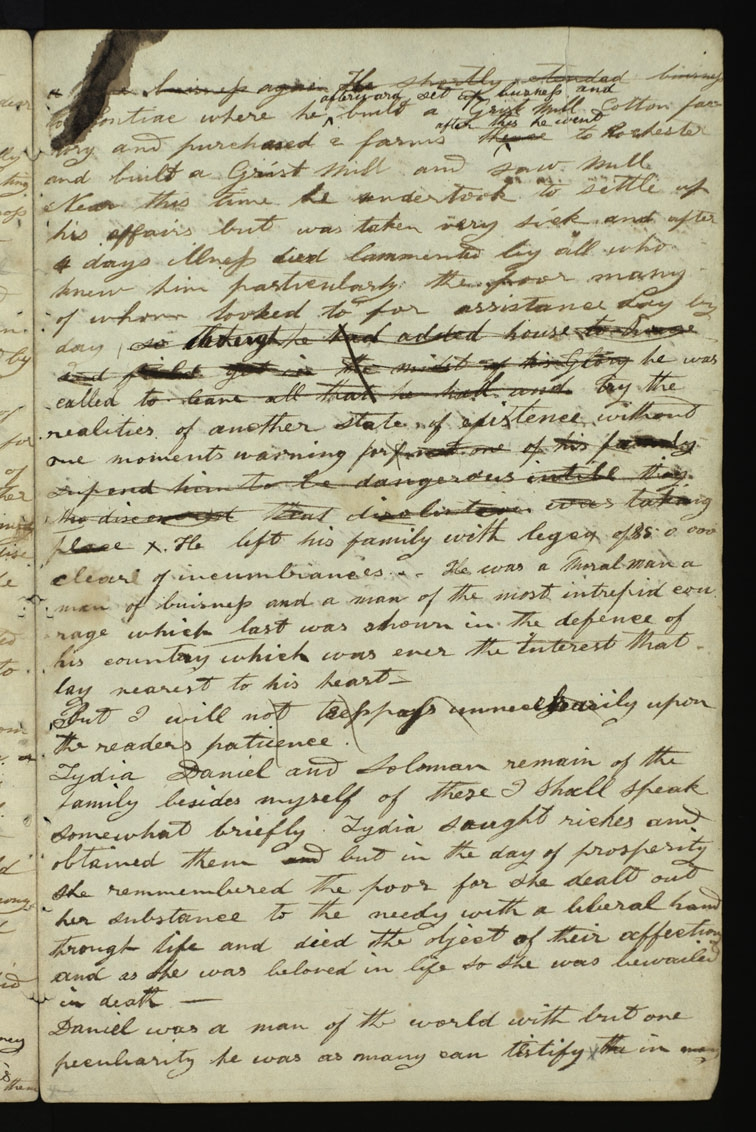 buisness again He shortly extended buisness
afterward set up buisness and
to Pontiac where he ^ built a Grist Mill Cotton fac-
after this he went
tory and purchased 2 farms thence to Rochester
and built a Grist Mill and saw Mill
Near this time he undertook to settle up
his affairs but was taken very sick and after
4 days illness died lammented by all who
knew him particularly the poor many
of whom looked to for assistance day by
day so though he had added house to house
and field yet in the midst of his Glory he was
called to leave all that he had and try the
realities of another state of existence without
one moments warning for not one of his family
supend him to be dangerous untill they
discend that disolution was taking
place X. He left his family with legacy of
clear of incumbrances. He was a Moral man a
man of buisness and a man of the most intrepid cou
rage which last was shown in the defence of
his country which was ever the Interest that
lay nearest to his heart—
But I will not tresspass unnecessarily upon
the readers patience.
Lydia Daniel and Soloman remain of the
family besides myself of these I Shall speak
somewhat briefly. Lydia saught riches and
obtained them and but in the day of prosperity
she remmembered the poor for she dealt out
her substance to the needy with a liberal hand
through life and died the object of their affection
and as she was beloved in life so she was bewailed
in death —
Daniel was a man of the world with but one
peculiarity he was as many can testify the in many